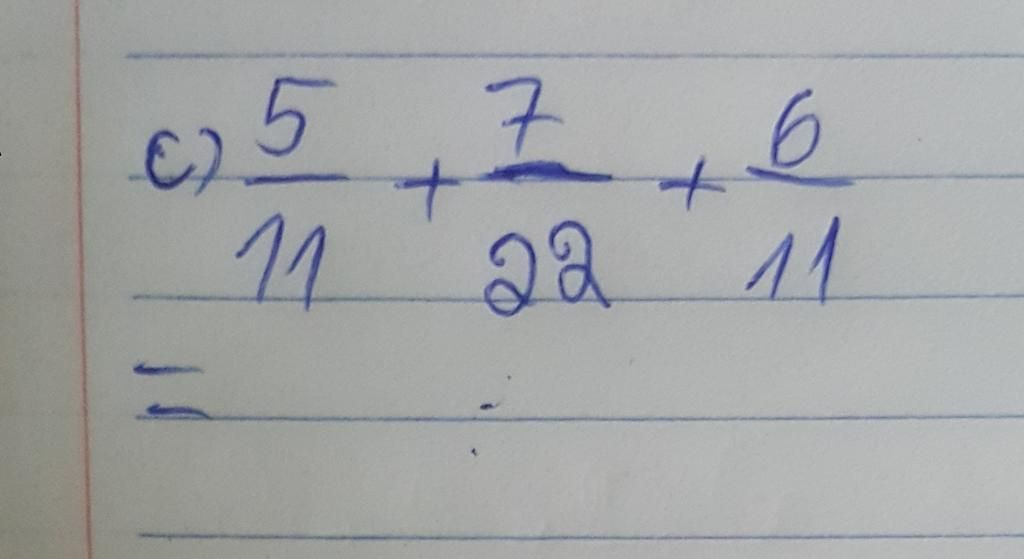 c) 5/11 + 7/22 + 6/11
=